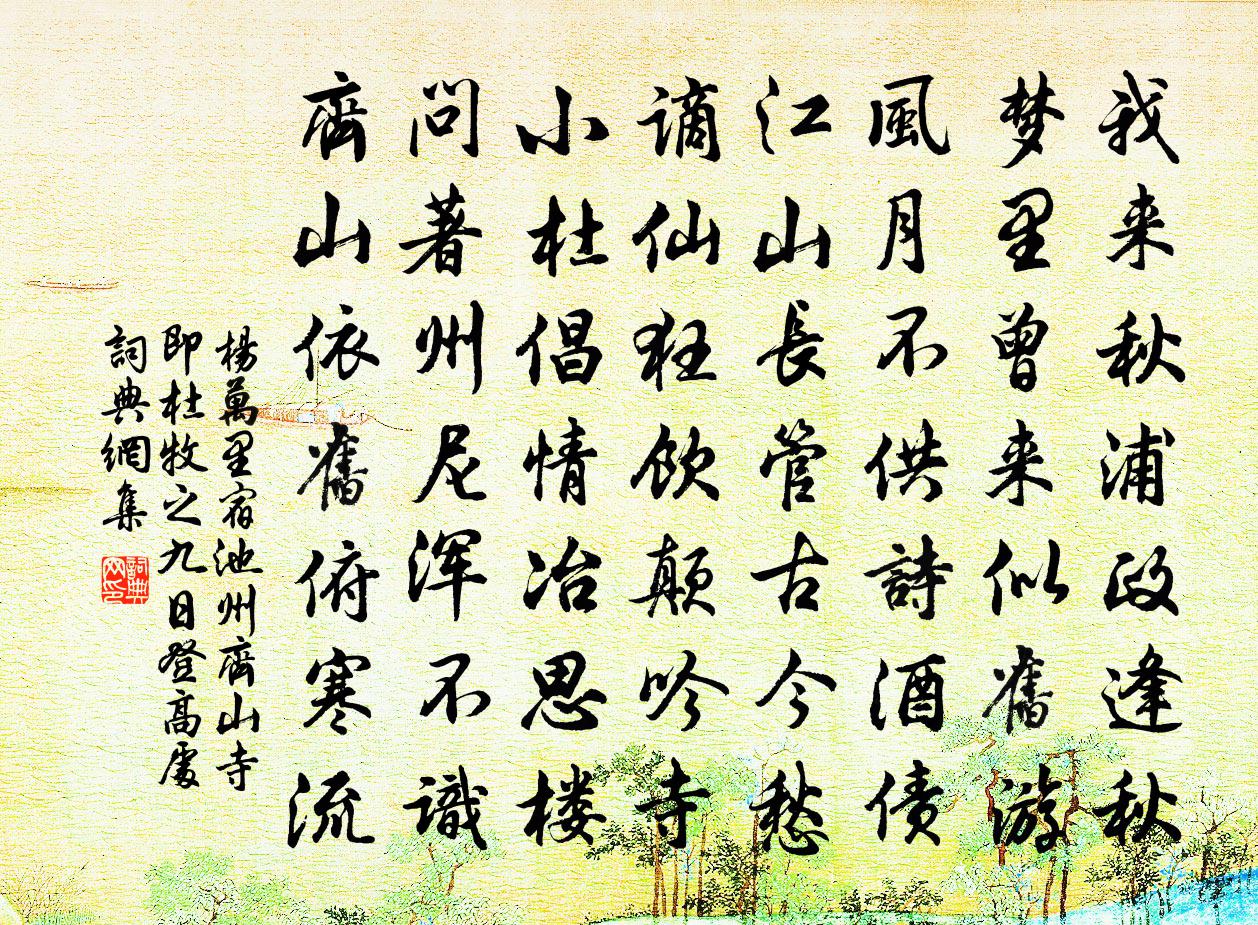 我来秋浦政逢秋
梦里曾来似舊游
風月不供詩酒债
江山長管古今愁
谪仙狂飲颠吟寺
小杜倡情冶思楼
問著州民浑不識
齊山依舊俯寒流
楊萬里宿池州齊山寺
即杜牧之九日登高處
詞典網集
詞典网印